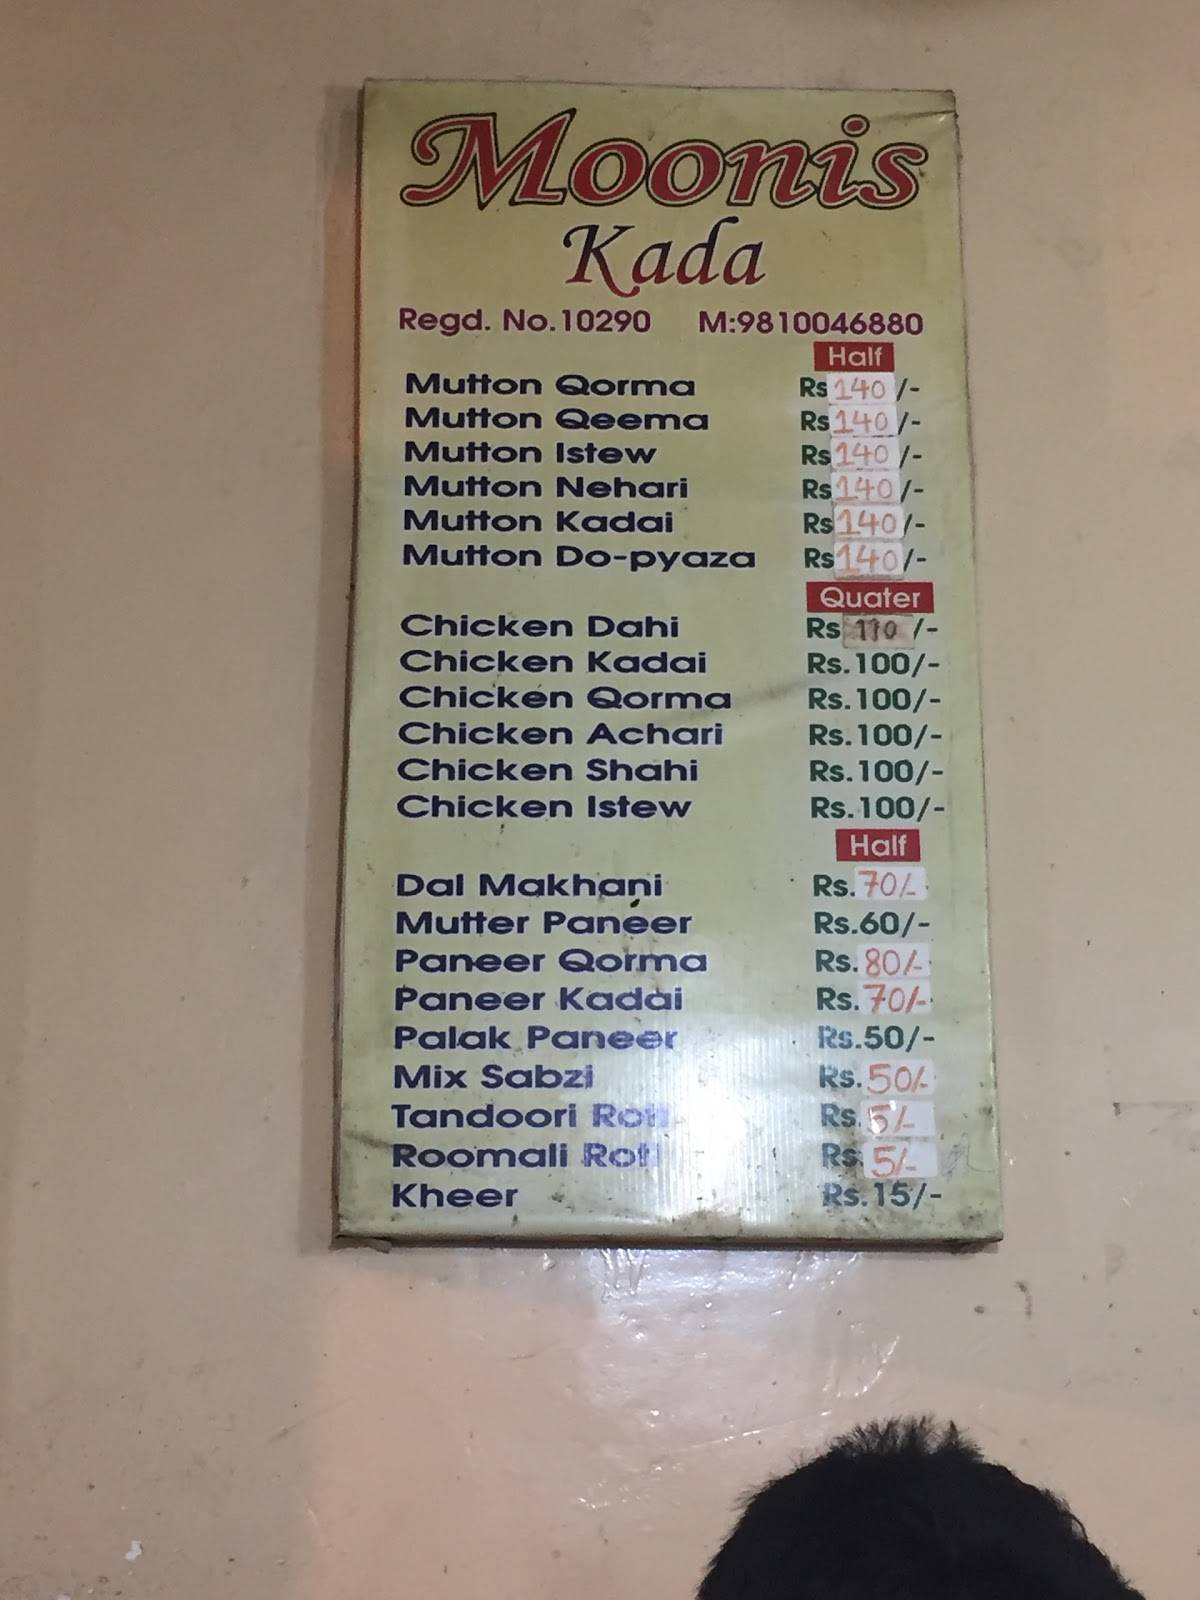 Moonis
Kada
Regd. No.10290 M:9810046880
Half
Mutton Qorma Rs 140/-
Mutton Qeema Rs 140/-
Mutton Istew Rs 140/-
Mutton Nehari Rs 140/-
Mutton Kadai Rs 140/-
Mutton Do-pyaza Rs 140/-
Quater
Chicken Dahi Rs 110/-
Chicken Kadai Rs.100/-
Chicken Qorma Rs.100/-
Chicken Achari Rs.100/-
Chicken Shahi Rs.100/-
Chicken Istew Rs.100/-
Half
Dal Makhani Rs.70/-
Mutter Paneer Rs.60/-
Paneer Qorma Rs.80/-
Paneer Kadai Rs.70/-
Palak Paneer Rs.50/-
Mix Sabzi Rs.50/-
Tandoori Roti Rs.5/-
Roomali Roti Rs 5/-
Kheer Rs.15/-